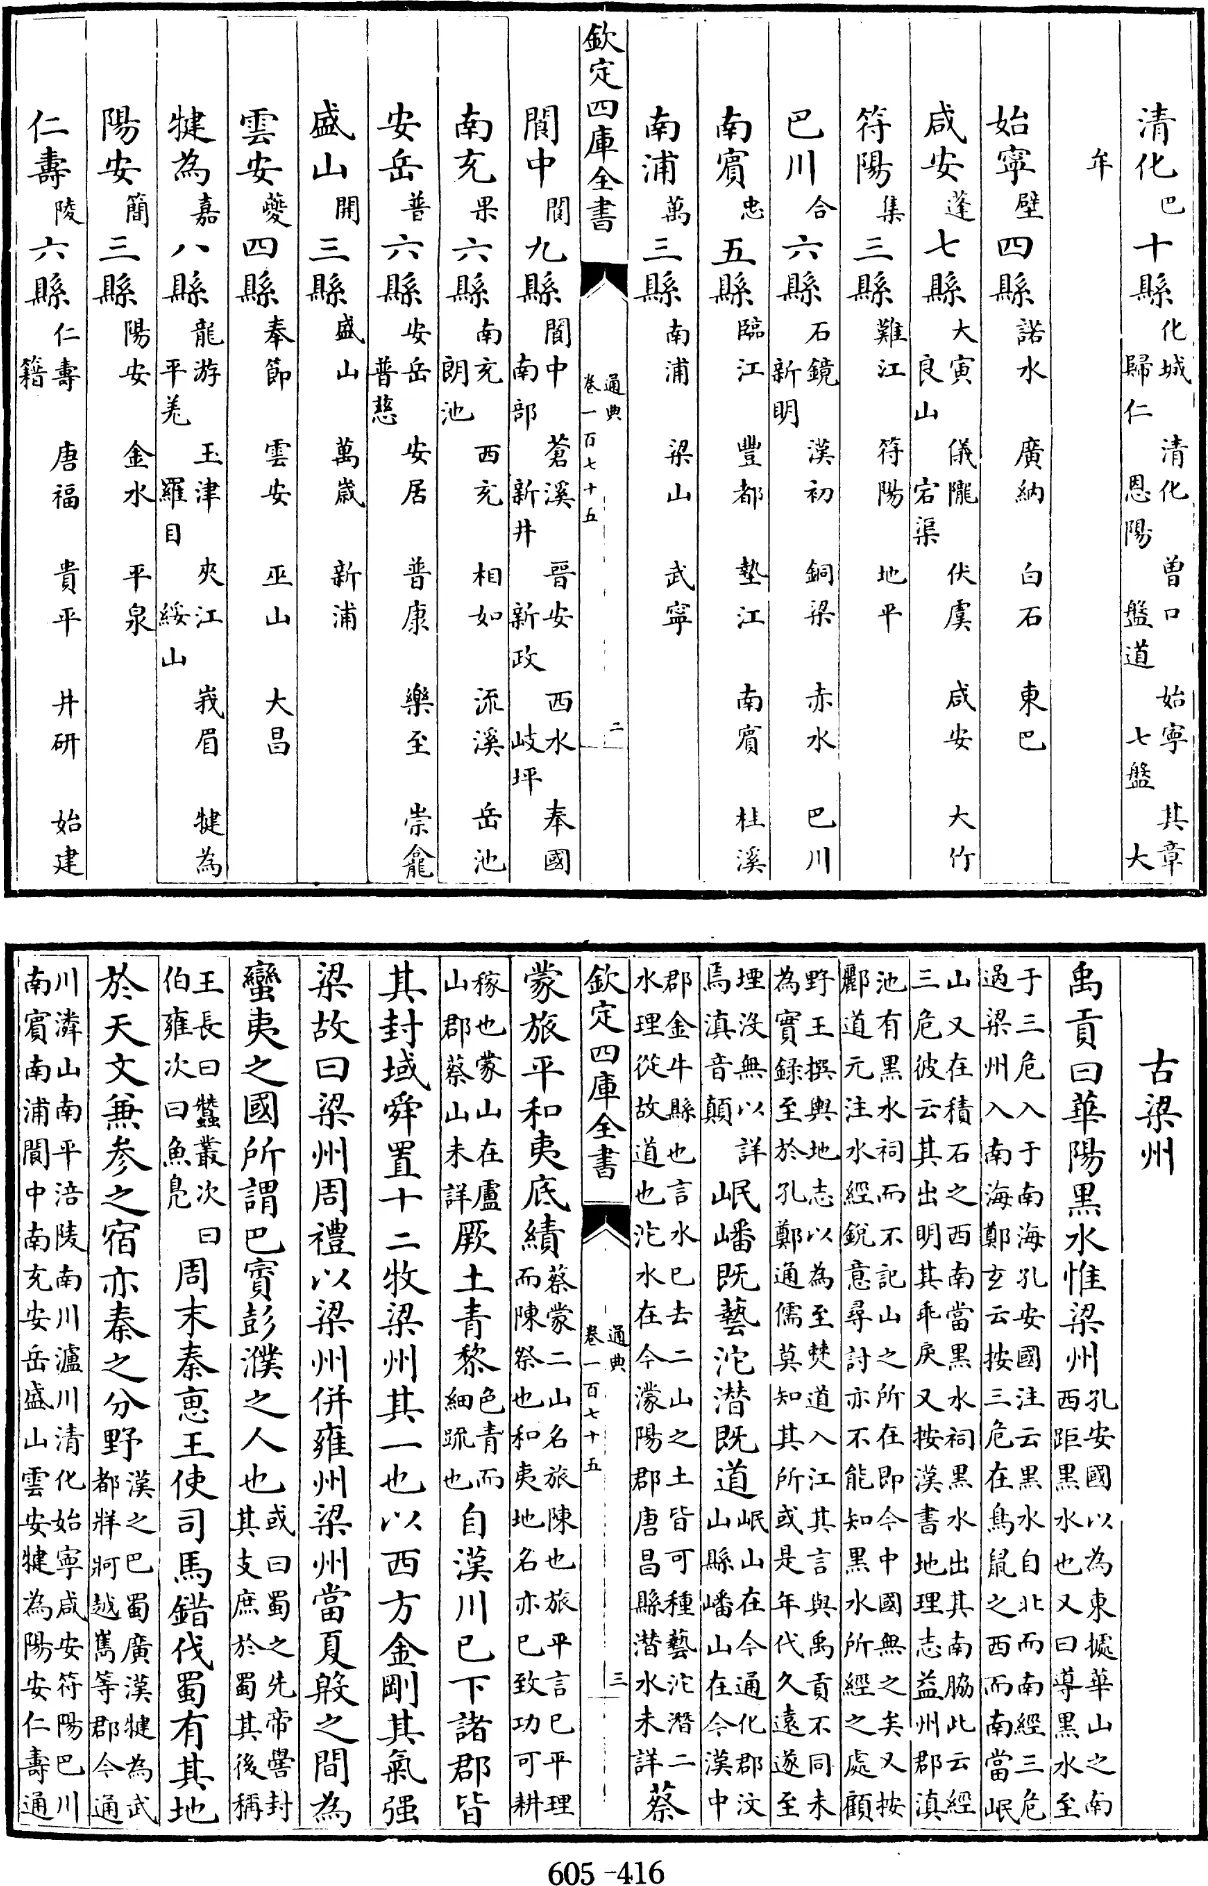 清化巴十縣化城 清化 曾口 始寧 其章
歸仁 恩陽 盤道 七盤 大
牟
始寧壁四縣諾水 廣納 白石 東巴
咸安蓬七縣大寅 儀隴 伏虞 咸安 大竹
良山 宕渠
符陽集三縣難江 符陽 地平
巴川合六縣石鏡 漢初 銅梁 赤水 巴川
新明
南賓忠五縣臨江 豐都 墊江 南賓 桂溪
南浦萬三縣南浦 梁山 武寧
欽定四庫全書 通典 卷一百七十五 二
閬中閬九縣閬中 蒼溪 晉安 西水 奉國
南部 新井 新政 岐坪
南充果六縣南充 西充 相如 流溪 岳池
朗池
安岳普六縣安岳 安居 普康 樂至 崇龕
普慈
盛山開三縣盛山 萬歲 新浦
雲安夔四縣奉節 雲安 巫山 大昌
犍為嘉八縣龍游 玉津 夾江 峩眉 犍為
平羌 羅目 綏山
陽安簡三縣陽安 金水 平泉
仁壽陵六縣仁壽 唐福 貴平 井研 始建
籍
古梁州
禹貢曰華陽黑水惟梁州孔安國以為東據華山之南
西距黑水也又曰導黑水至
于三危入于南海孔安國注云黑水自北而南經三危
過梁州入南海鄭玄云按三危在鳥鼠之西而南當岷
山又在積石之西南當黑水祠黑水出其南脇此云經
三危彼云其出明其乖戾又按漢書地理志益州郡滇
池有黑水祠而不記山之所在即今中國無之矣又按
酈道元注水經銳意尋討亦不能知黑水所經之處顧
野王撰輿地志以為至僰道入江其言與禹貢不同未
為實録至於孔鄭通儒莫知其所或是年代久遠遂至
堙沒無以詳
焉滇音顛
岷嶓既藝沱潛既道岷山在今通化郡汶
山縣嶓山在今漢中
郡金牛縣也言水已去二山之土皆可種藝沱潛二
水理從故道也沱水在今濛陽郡唐昌縣潛水未詳
蔡
欽定四庫全書 通典 卷一百七十五 三
蒙旅平和夷底績蔡蒙二山名旅陳也旅平言已平理
而陳祭也和夷地名亦已致功可耕
稼也蒙山在盧
山郡蔡山未詳
厥土青黎色青而
細疏也
自漢川已下諸郡皆
其封域舜置十二牧梁州其一也以西方金剛其氣强
梁故曰梁州周禮以梁州併雍州梁州當夏殷之間為
蠻夷之國所謂巴賨彭濮之人也或曰蜀之先帝嚳封
其支庶於蜀其後稱
王長曰蠶叢次曰
伯雍次曰魚鳧
周末秦惠王使司馬錯伐蜀有其地
於天文兼參之宿亦秦之分野漢之巴蜀廣漢犍為武
都牂牁越嶲等郡今通
川潾山南平涪陵南川瀘川清化始寧咸安符陽巴川
南賓南浦閬中南充安岳盛山雲安犍為陽安仁壽通
605-416